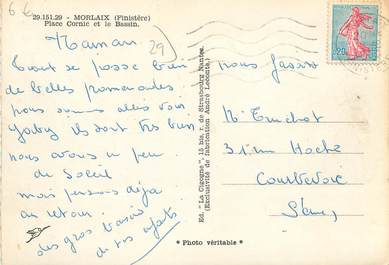 29.151.29 - MORLAIX (Finistère)
Place Cornic et le Bassin.
29
Maman
Tout se passe bien
de belles promenades
nous faisons
nous sommes allés voir
ils sont très bien
nous avons un peu
de Soleil
mais pensons déjà
au retour.
des gros baisers
de vos
Ed. "La Cigogne", 15 bis, r. de Strasbourg Nantes.
(Exclusivité de fabrication André Leconte.)
Mr Truchot
31 rue Hoche
Courbevoie
Seine
0,20
* Photo véritable *